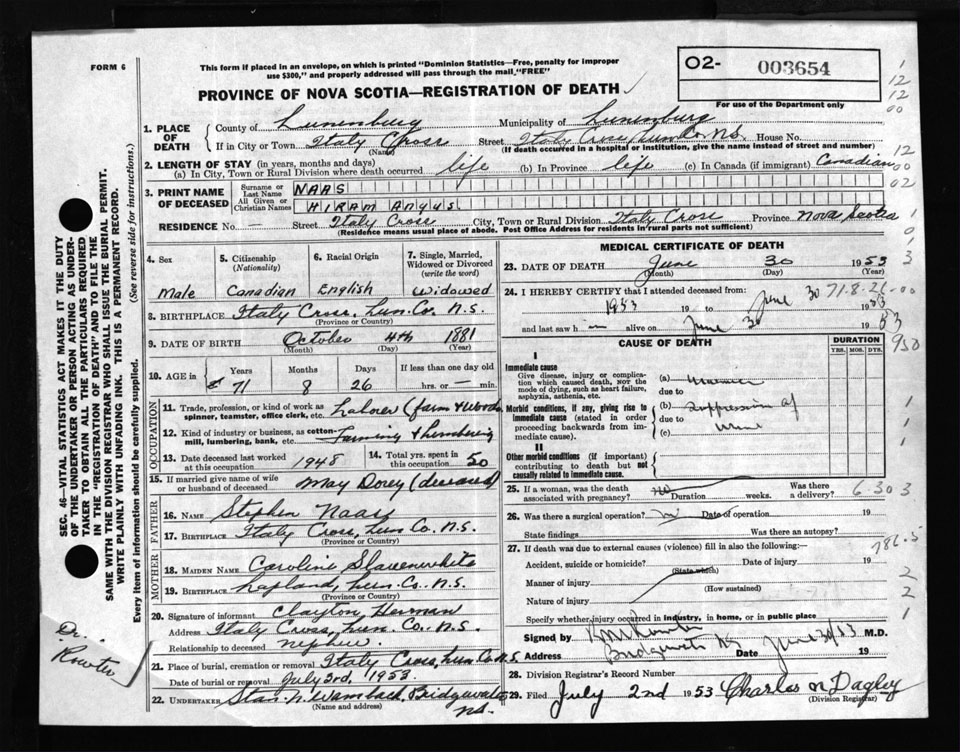 FORM 6
This form if placed in an envelope, on which is printed "Dominion Statistics—Free, penalty for improper
use $300," and properly addressed will pass through the mail "FREE"
O2- 003654
For use of the Department only
PROVINCE OF NOVA SCOTIA—REGISTRATION OF DEATH
1. PLACE OF DEATH
County of Lunenburg Municipality of Lunenburg
If in City or Town Italy Cross (Name) Street Italy Cross, Lun. Co. N.S. House No.
(If death occurred in a hospital or institution, give the name instead of street and number)
2. LENGTH OF STAY (in years, months and days)
(a) In City, Town or Rural Division where death occurred life (b) In Province life (c) In Canada (if immigrant) Canadian
3. PRINT NAME OF DECEASED
Surname or Last Name NAAS
All Given or Christian Names HIRAM ANGUS
RESIDENCE No. — Street Italy Cross City, Town or Rural Division Italy Cross Province Nova Scotia
(Residence means usual place of abode. Post Office Address for residents in rural parts not sufficient)
4. Sex Male
5. Citizenship (Nationality) Canadian
6. Racial Origin English
7. Single, Married, Widowed or Divorced (write the word) Widowed
8. BIRTHPLACE Italy Cross, Lun. Co. N.S.
(Province or Country)
9. DATE OF BIRTH October 4th 1881
(Month) (Day) (Year)
10. AGE in Years Months Days If less than one day old
71 8 26 hrs. or — min.
OCCUPATION
11. Trade, profession, or kind of work as spinner, teamster, office clerk, etc. Laborer (farm & Woods
12. Kind of industry or business, as cotton-mill, lumbering, bank, etc. Farming & Lumbering
13. Date deceased last worked at this occupation 1948
14. Total yrs. spent in this occupation 50
15. If married give name of wife or husband of deceased May Dorey (deceased)
FATHER
16. NAME Stephen Naas
17. BIRTHPLACE Italy Cross, Lun Co. N.S.
(Province or Country)
MOTHER
18. MAIDEN NAME Caroline Slauenwhite
19. BIRTHPLACE Lapland, Lun. Co. N.S.
(Province or Country)
20. Signature of informant Clayton Herman
Address Italy Cross, Lun. Co. N.S.
Relationship to deceased nephew
21. Place of burial, cremation or removal Italy Cross, Lun Co N.S.
Date of burial or removal July 3rd, 1953
22. UNDERTAKER Stan. N. Wamback, Bridgewater N.S.
(Name and address)
MEDICAL CERTIFICATE OF DEATH
23. DATE OF DEATH June 30 1953
(Month) (Day) (Year)
24. I HEREBY CERTIFY that I attended deceased from:
1953 19 to June 30 1953
and last saw h alive on June 30 1953
71-8-26-00
CAUSE OF DEATH
DURATION
YRS. MOS. DYS.
I
Immediate cause
Give disease, injury or complication which caused death, not the mode of dying, such as heart failure, asphyxia, asthenia, etc.
(a) Uraemia
due to
Morbid conditions, if any, giving rise to immediate cause (stated in order proceeding backwards from immediate cause).
(b) Suppression of
due to
(c) urine
II
Other morbid conditions (if important) contributing to death but not causally related to immediate cause.
25. If a woman, was the death associated with pregnancy? no Duration weeks. Was there a delivery?
6-30 3
26. Was there a surgical operation? Date of operation 19
State findings Was there an autopsy?
786.5
27. If death was due to external causes (violence) fill in also the following:—
Accident, suicide or homicide? (State which) Date of injury 19
Manner of injury (How sustained)
Nature of injury
Specify whether injury occurred in industry, in home, or in public place
Signed by M.D.
Address Bridgewater NS Date June 30/53 19
28. Division Registrar's Record Number
29. Filed July 2nd 1953 Charles N Dagley
(Division Registrar)
SEC. 46- VITAL STATISTICS ACT MAKES IT THE DUTY
OF THE UNDERTAKER OR PERSON ACTING AS UNDER-
TAKER TO OBTAIN ALL THE PARTICULARS REQUIRED
IN THE "REGISTRATION OF DEATH" AND TO FILE THE
SAME WITH THE DIVISION REGISTRAR WHO SHALL ISSUE THE BURIAL PERMIT.
WRITE PLAINLY WITH UNFADING INK. THIS IS A PERMANENT RECORD.
Every item of information should be carefully supplied. (See reverse side for instructions.)
Dr.
1
12
12
00
12
00
02
1
0
3
930
1
1
1
2
2
1